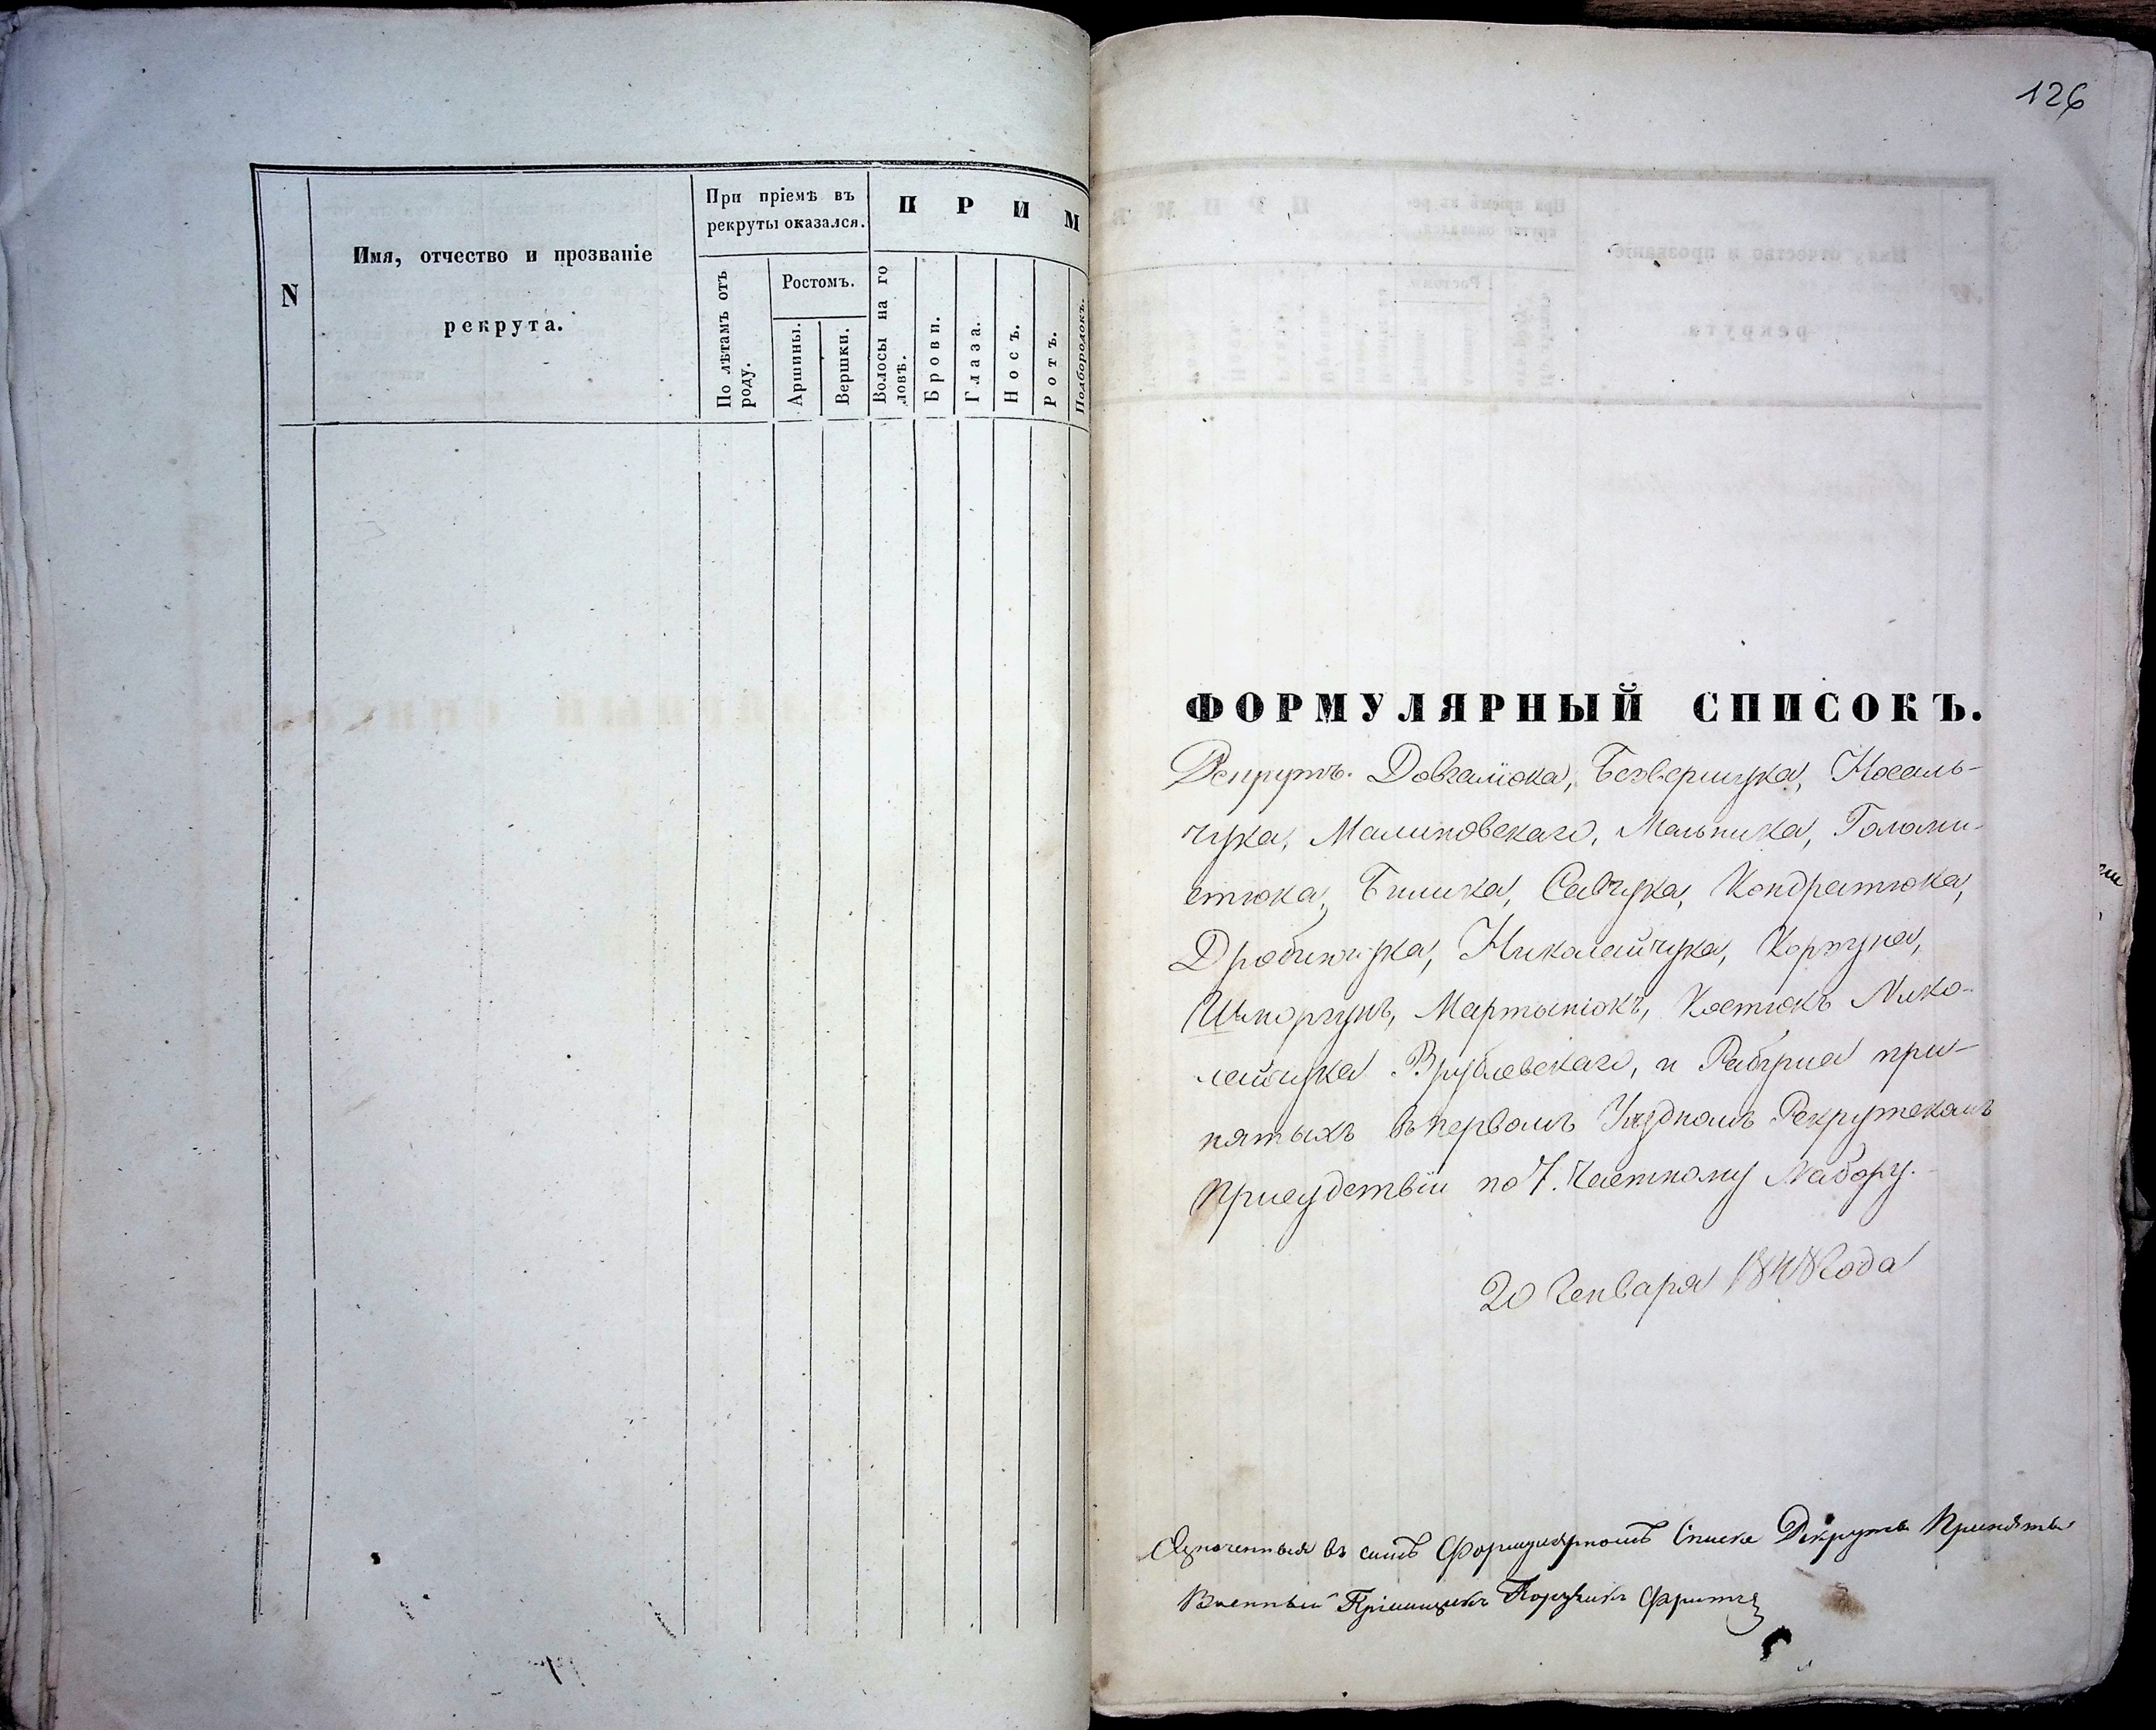 N
Имя, отчество и прозваніе
рекрута.
При пріемѣ въ
рекруты оказался.
По лѣтамъ отъ
роду.
Ростомъ.
Аршины.
Вершки.
П Р И М
Волосы на го
ловѣ.
Брови.
Глаза.
Носъ.
Ротъ.
Подбородокъ.
126
ФОРМУЛЯРНЫЙ СПИСОКЪ.
Рекрутъ. Довгалюка, Безверчука, Косаль-
чука, Малиновскаго, Мельника, Голоми-
стюка, Билика, Савчука, Кондратюка,
Дробинчука, Николайчука, Коржуна,
Шкоргунъ, Мартынюкъ, Костюкъ Нико-
лайчука Врублевскаго, и Рабчуна при-
нятыхъ въ первомъ Уѣздномъ Рекрутскомъ
Присудствіи по 7. Частному Набору.
20 Генваря 1848 года
Означенныя въ семъ Формулярномъ Списке Рекруты Приняты
Военный Пріемщикъ Поручикъ